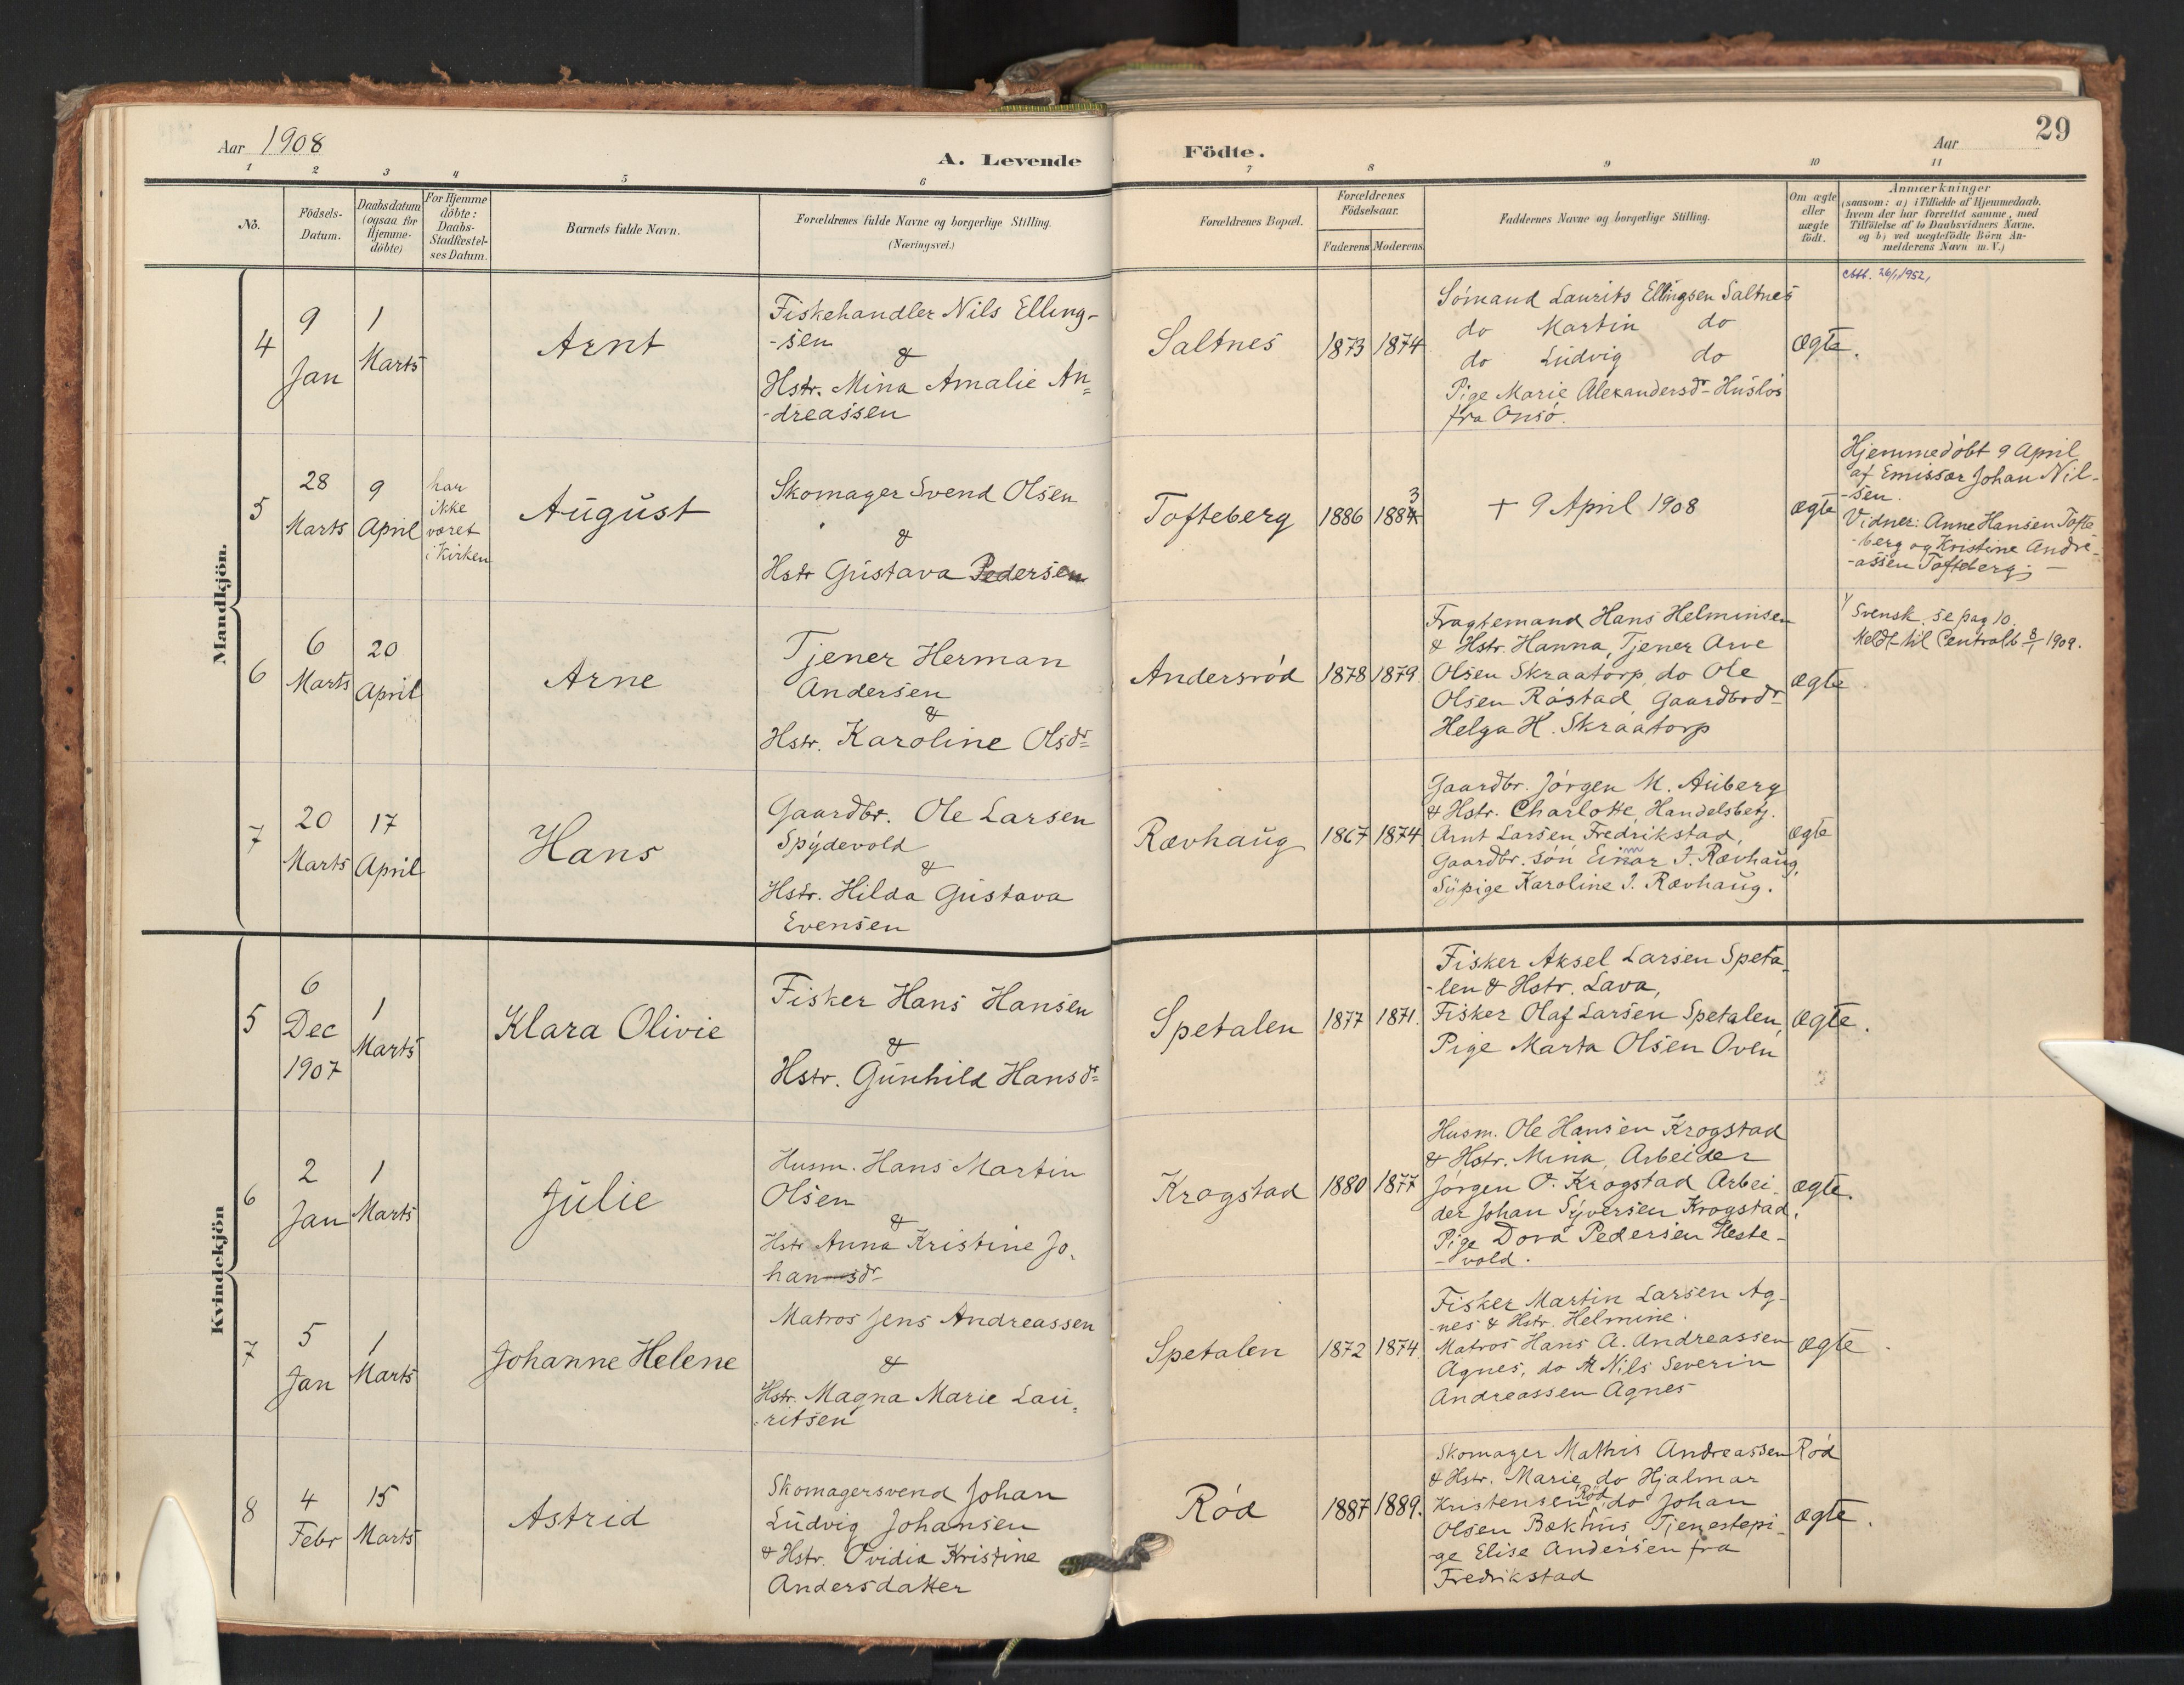 Aar 1908
A. Levende
Födte.
Aar
29
1 2 3 4 5 6 7 8 9 10 11
No.
Födsels-
Datum.
Daabsdatum
(ogsaa for
Hjemme-
döbte)
For Hjemme
döbte:
Daabs-
Stadfæstel-
ses Datum.
Barnets fulde Navn.
Forældrenes fulde Navne og borgerlige Stilling.
(Næringsvei.)
Forældrenes Bopæl.
Forældrenes
Födselsaar.
Faderens Moderens
Faddernes Navne og borgerlige Stilling.
Om ægte
eller
uægte
födt.
Anmærkninger
(saasom: a) i Tilfælde af Hjemmedaab,
hvem der har forrettet samme, med
Tilföielse af to Daabsvidners Navne,
og b) ved uægtefödte Börn An-
melderens Navn m. V.)
Mandkjön.
4
9
Jan
1
Marts
Arnt
Fiskehandler Nils Elling-
-sen
&
Hstr. Mina Amalie An=
-dreassen
Saltnes
1873 1874
Sömand Laurits Ellingsen Saltnes
do Martin do
do Ludvig do
Pige Marie Alexandersdr Huslös
fra Onsö.
ægte.
26/1 1952,
5
28
Marts
9
April
har
ikke
været
i Kirken
August
Skomager Svend Olsen
&
Hstr Gustava Pedersen
Tofteberg
3
1886 1884
+ 9 April 1908
ægte
Hjemmedöbt 9 April
af Emissær Johan Nil-
-sen.
Vidner: Anne Hansen Tofte
-berg og Kristine Andre-
-assen Tofteberg;
6
6
Marts
20
April
Arne
Tjener Herman
Andersen
&
Hstr. Karoline Olsdr
Andersröd
1878 1879
Fragtemand Hans Helminsen
& Hstr. Hanna, Tjener Arve
Olsen Skraatorp, do Ole
Olsen Råstad, Gaardbrdr
Helga H. Skraatorp
ægte
Svensk. se pag 10.
Meldt til Centralb 8/1 1909.
7
20
Marts
17
April
Hans
Gaardbr. Ole Larsen
Spydevold
&
Hstr. Hilda Gustava
Evensen
Rævhaug
1867 1874
Gaardbr. Jörgen M. Auberg
& Hstr. Charlotte, Handelsbetj.
Arnt Larsen, Fredrikstad,
Gaardbr. sön Einar J. Rævhaug,
Sypige Karoline J. Rævhaug.
ægte
Kvindekjön
5
6
Dec
1907
1
Marts
Klara Olivie
Fisker Hans Hansen
&
Hstr. Gunhild Hansdr
Spetalen
1877 1871.
Fisker Aksel Larsen Speta-
-len & Hstr. Lava,
Fisker Olaf Larsen Spetalen,
Pige Marta Olsen Oven
ægte.
6
2
Jan
1
Marts
Julie
Husm. Hans Martin
Olsen
&
Hstr Anna Kristine Jo-
hannsdr
Krogstad
1880 1877
Husm. Ole Hansen Krogstad
& Hstr. Mina, Arbeider
Jörgen O. Krogstad Arbei-
der Johan Syversen Krogstad,
Pige Dora Pedersen Heste-
-vold.
ægte.
7
5
Jan
1
Marts
Johanne Helene
Matros Jens Andreassen
&
Hstr. Magna Marie Lau=
-ritsen
Spetalen
1872 1874
Fisker Martin Larsen Ag-
-nes & Hstr. Helmine.
Matros Hans A. Andreassen
Agnes, do Nils Severin
Andreassen Agnes
ægte.
8
4
Febr
15
Marts
Astrid
Skomagersvend Johan
Ludvig Johansen
& Hstr. Ovidia Kristine
Andersdatter
Röd
1887 1889.
Skomager Mathis Andreassen Röd
& Hstr. Marie, do Hjalmar
Kristensen Röd, do Johan
Olsen Bækhus, Tjenestepi-
-ge Elise Andersen fra
Fredrikstad
ægte.